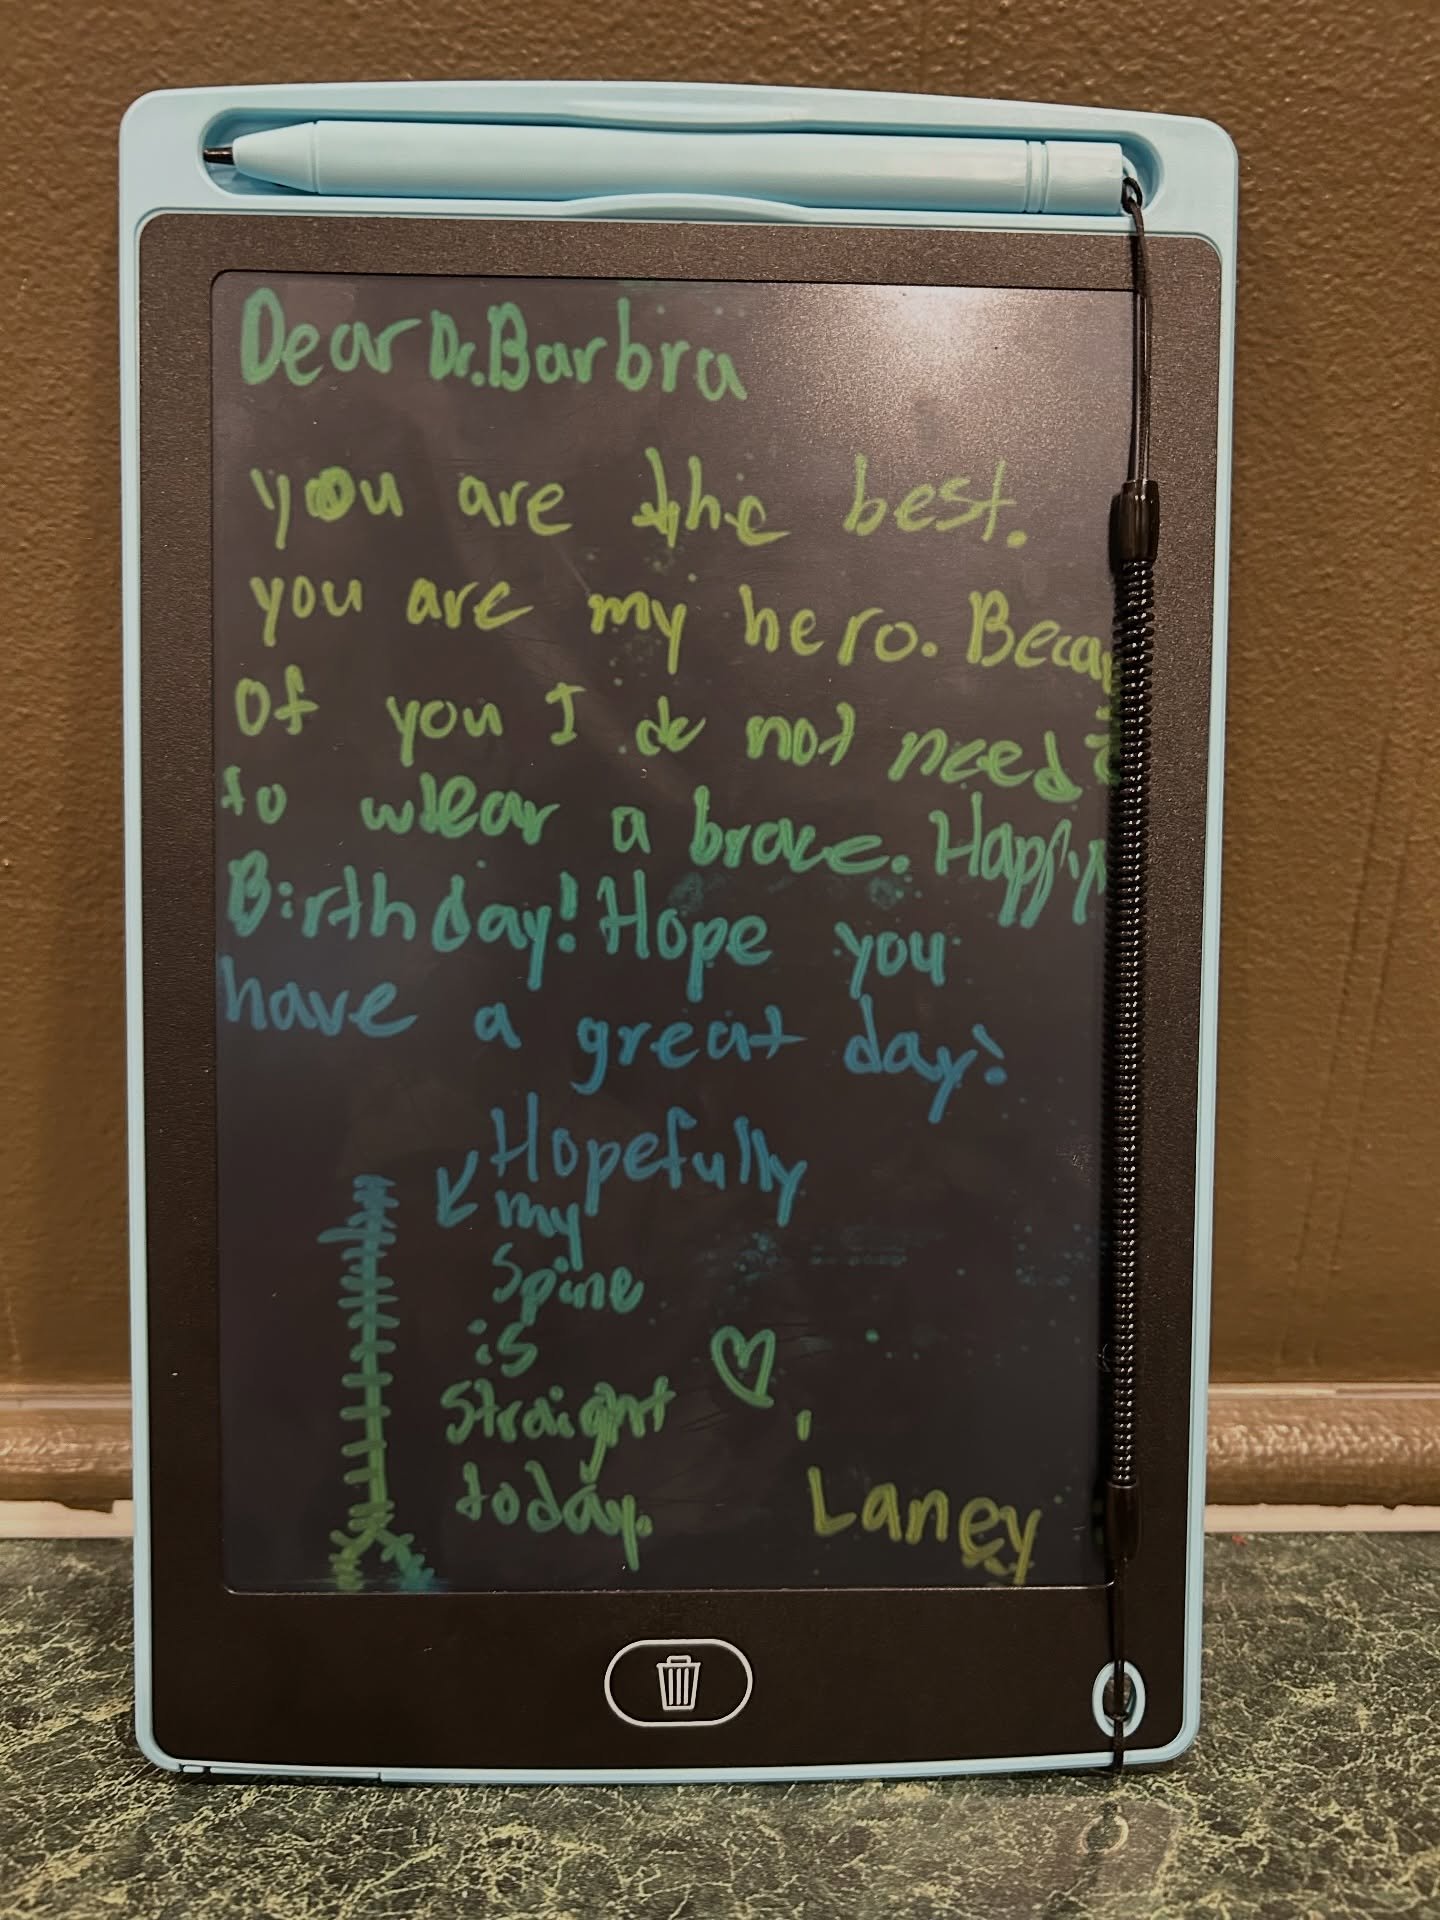 Dear Dr. Barbra
you are the best.
you are my hero. Becau
of you I do not need
to wear a brace. Happy
Birthday! Hope you
have a great day!
Hopefully
my
spine
is
straight
today.
Laney